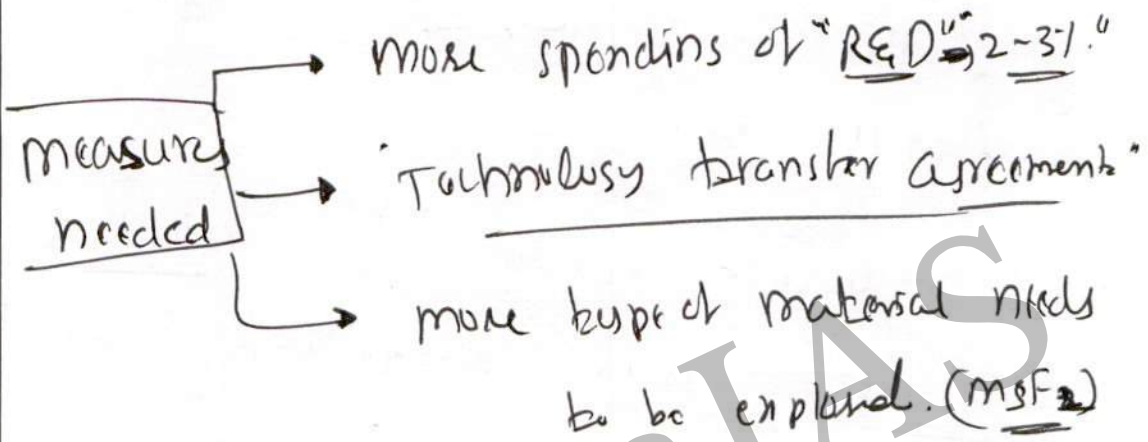 measures
needed
more spending of "R&D" 2-3%."
"Technology transfer agreement"
more type of material needs
to be explored. (MgF2)
IAS